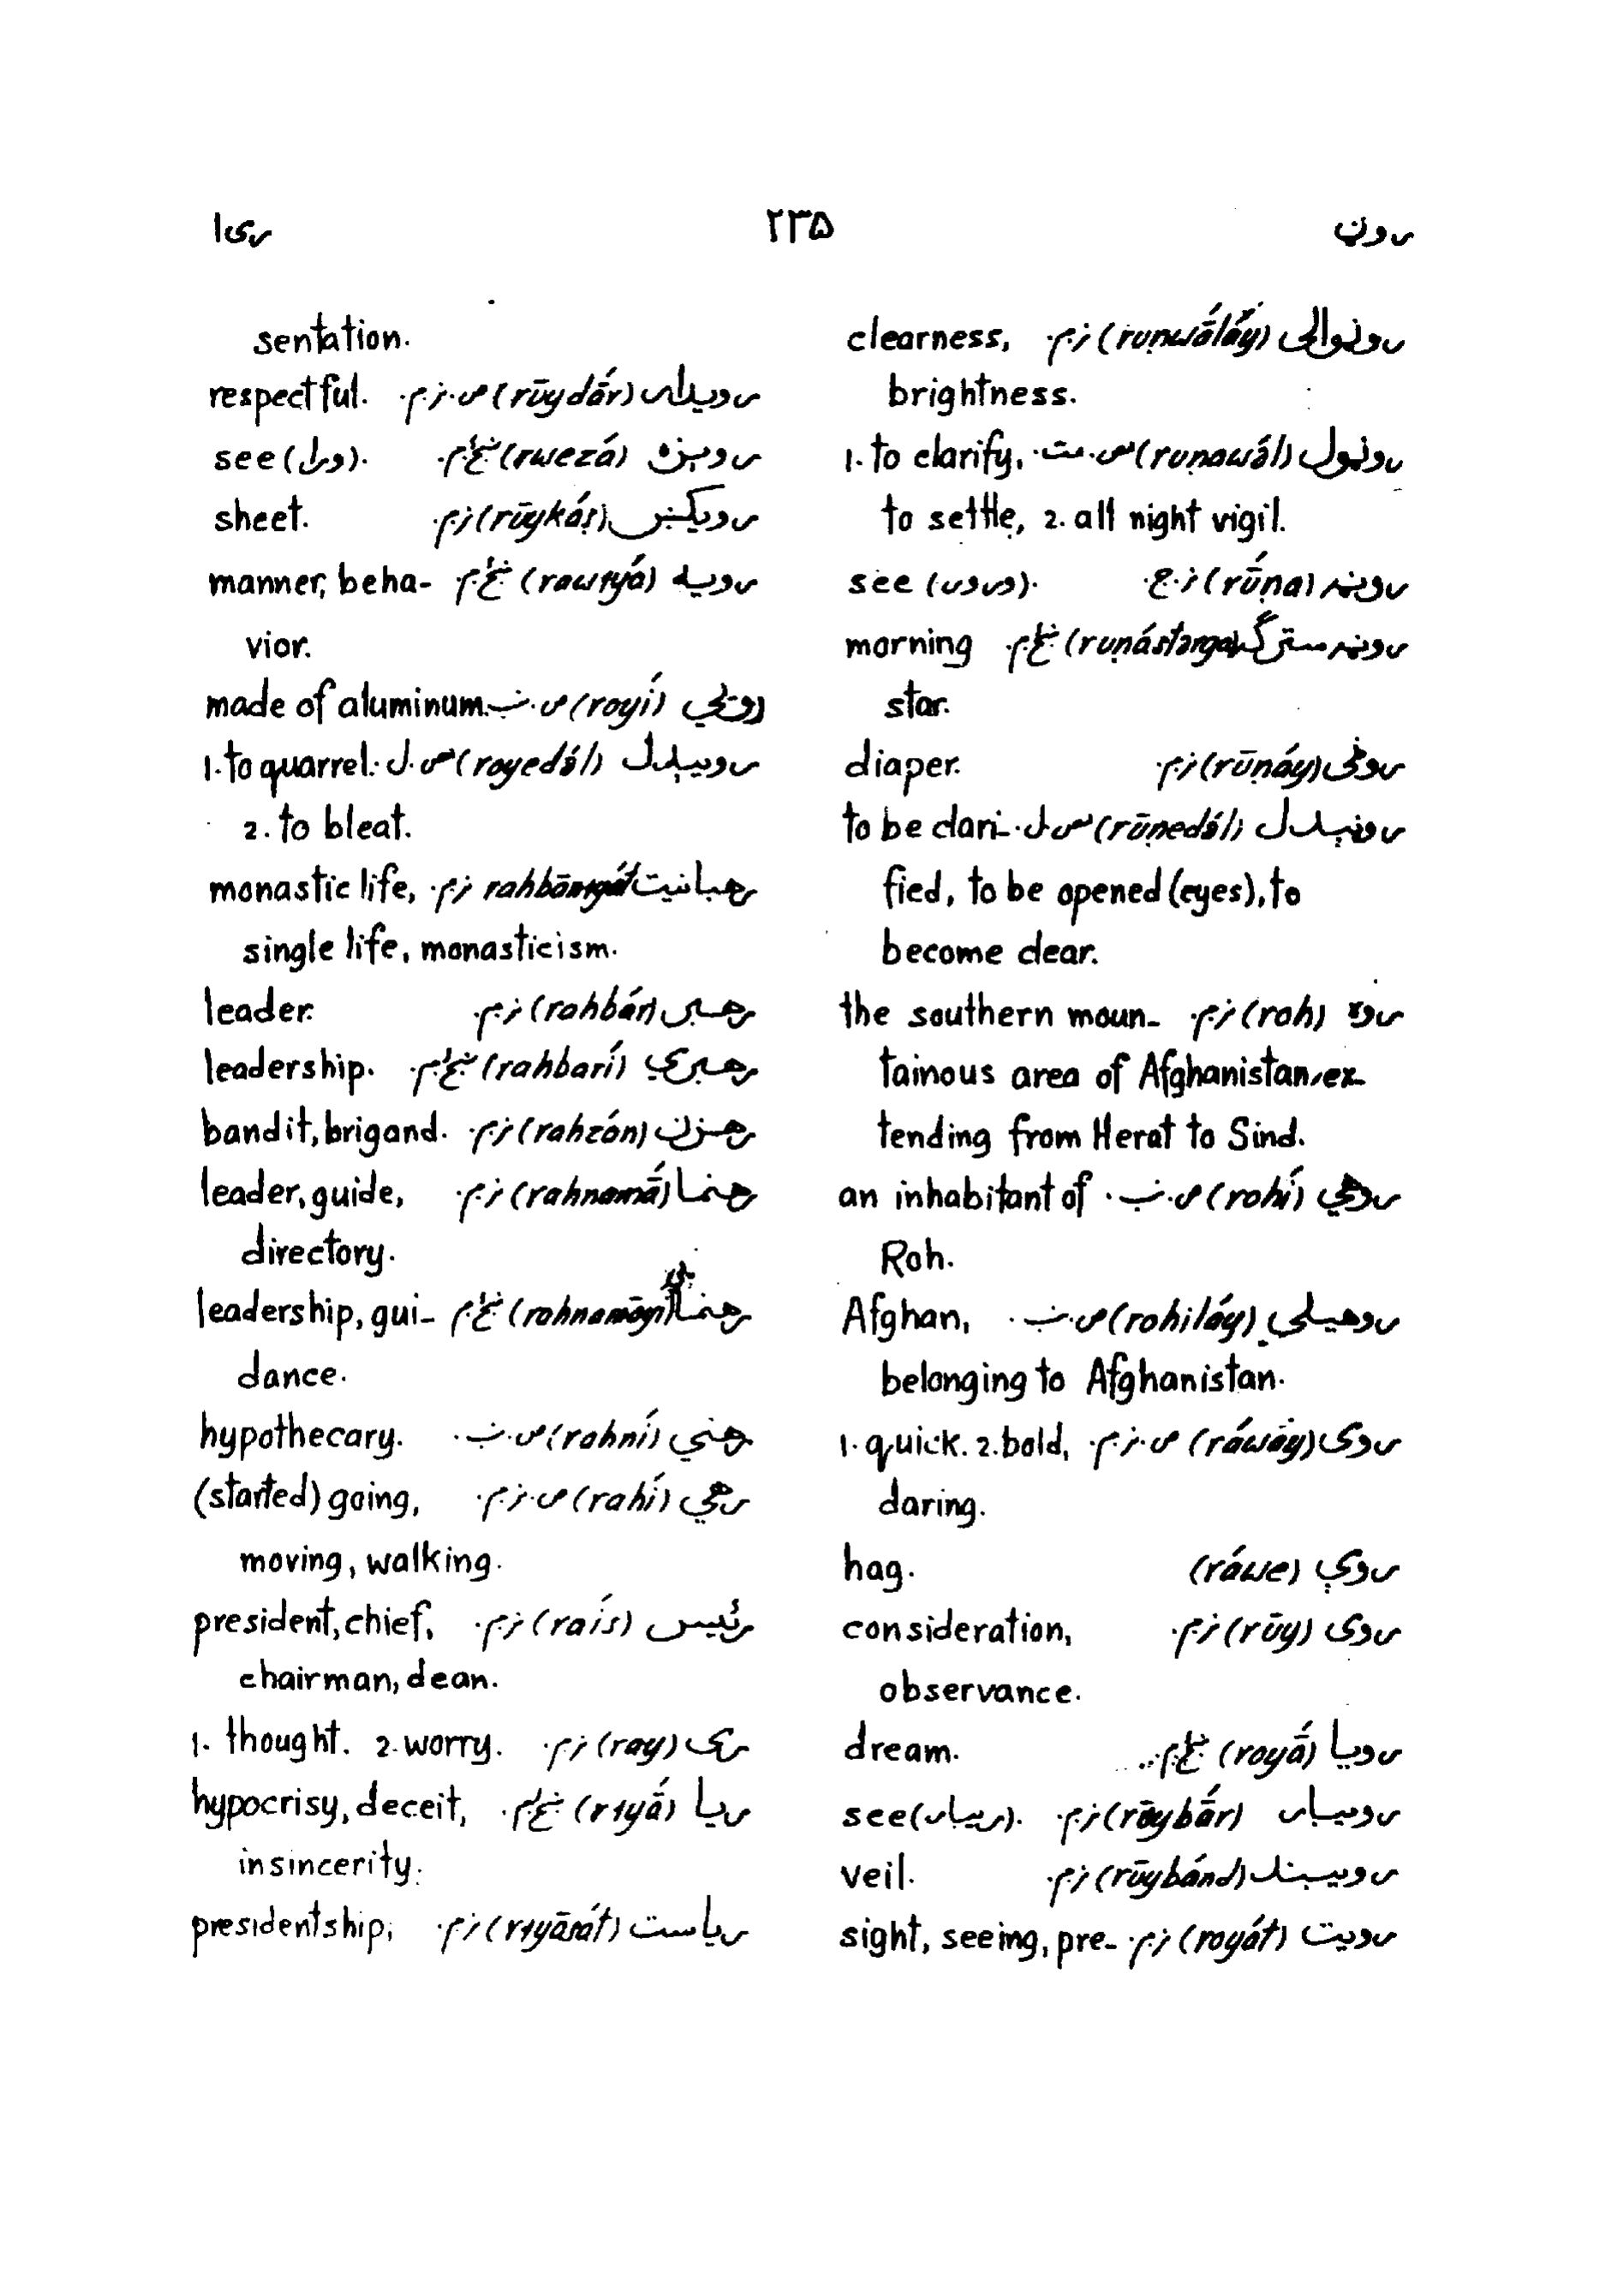 رون ۲۳۵ ریا
روڼوالی (ruṇwālə́y) ن.م. clearness,
brightness.
روڼول (ruṇawə́l) ص.مت. 1. to clarify,
to settle, 2. all night vigil.
روڼه (rū́ṇa) ن.ج. see (ورور).
روڼه ستورګه م. morning
star.
روڼی (rūṇáy) ن.م. diaper.
روڼېدل (rūṇedə́l) ص.ل. to be clari-
fied, to be opened (eyes), to
become clear.
روه (roh) ن.م. the southern moun-
tainous area of Afghanistan, ex-
tending from Herat to Sind.
روهي (rohí) ص.ن. an inhabitant of
Roh.
روهیلی (rohiláy) ص.ن. Afghan,
belonging to Afghanistan.
روی (ráwáy) ص.ن.م. 1. quick. 2. bold,
daring.
روې (ráwe) hag.
روی (rūy) ن.م. consideration,
observance.
رویا (royā́) dream.
رویبار (rūybā́r) ن.م. see (ریبار).
رویبند (rūybánd) ن.م. veil.
رویت (royát) ن.م. sight, seeing, pre-
sentation.
رویدار (rūydā́r) ص.ن.م. respectful.
رویزه (rwezá) see (ورا).
رویکښ (rūykáṣ) ن.م. sheet.
رویه (rawɪyá) manner, beha-
vior.
رویي (royí) ص.ن. made of aluminum.
رویېدل (royedə́l) ص.ل. 1. to quarrel.
2. to bleat.
رهبانیت ن.م. monastic life,
single life, monasticism.
رهبر (rahbár) ن.م. leader.
رهبري (rahbarí) leadership.
رهزن (rahzán) ن.م. bandit, brigand.
رهنما (rahnamā́) ن.م. leader, guide,
directory.
رهنمایي (rahnamāyí) leadership, gui-
dance.
رهني (rahní) ص.ن. hypothecary.
رهي (rahí) ص.ن.م. (started) going,
moving, walking.
رئیس (raís) ن.م. president, chief,
chairman, dean.
ری (ray) ن.م. 1. thought. 2. worry.
ریا (rɪyā́) hypocrisy, deceit,
insincerity.
ریاست (rɪyāsát) ن.م. presidentship,